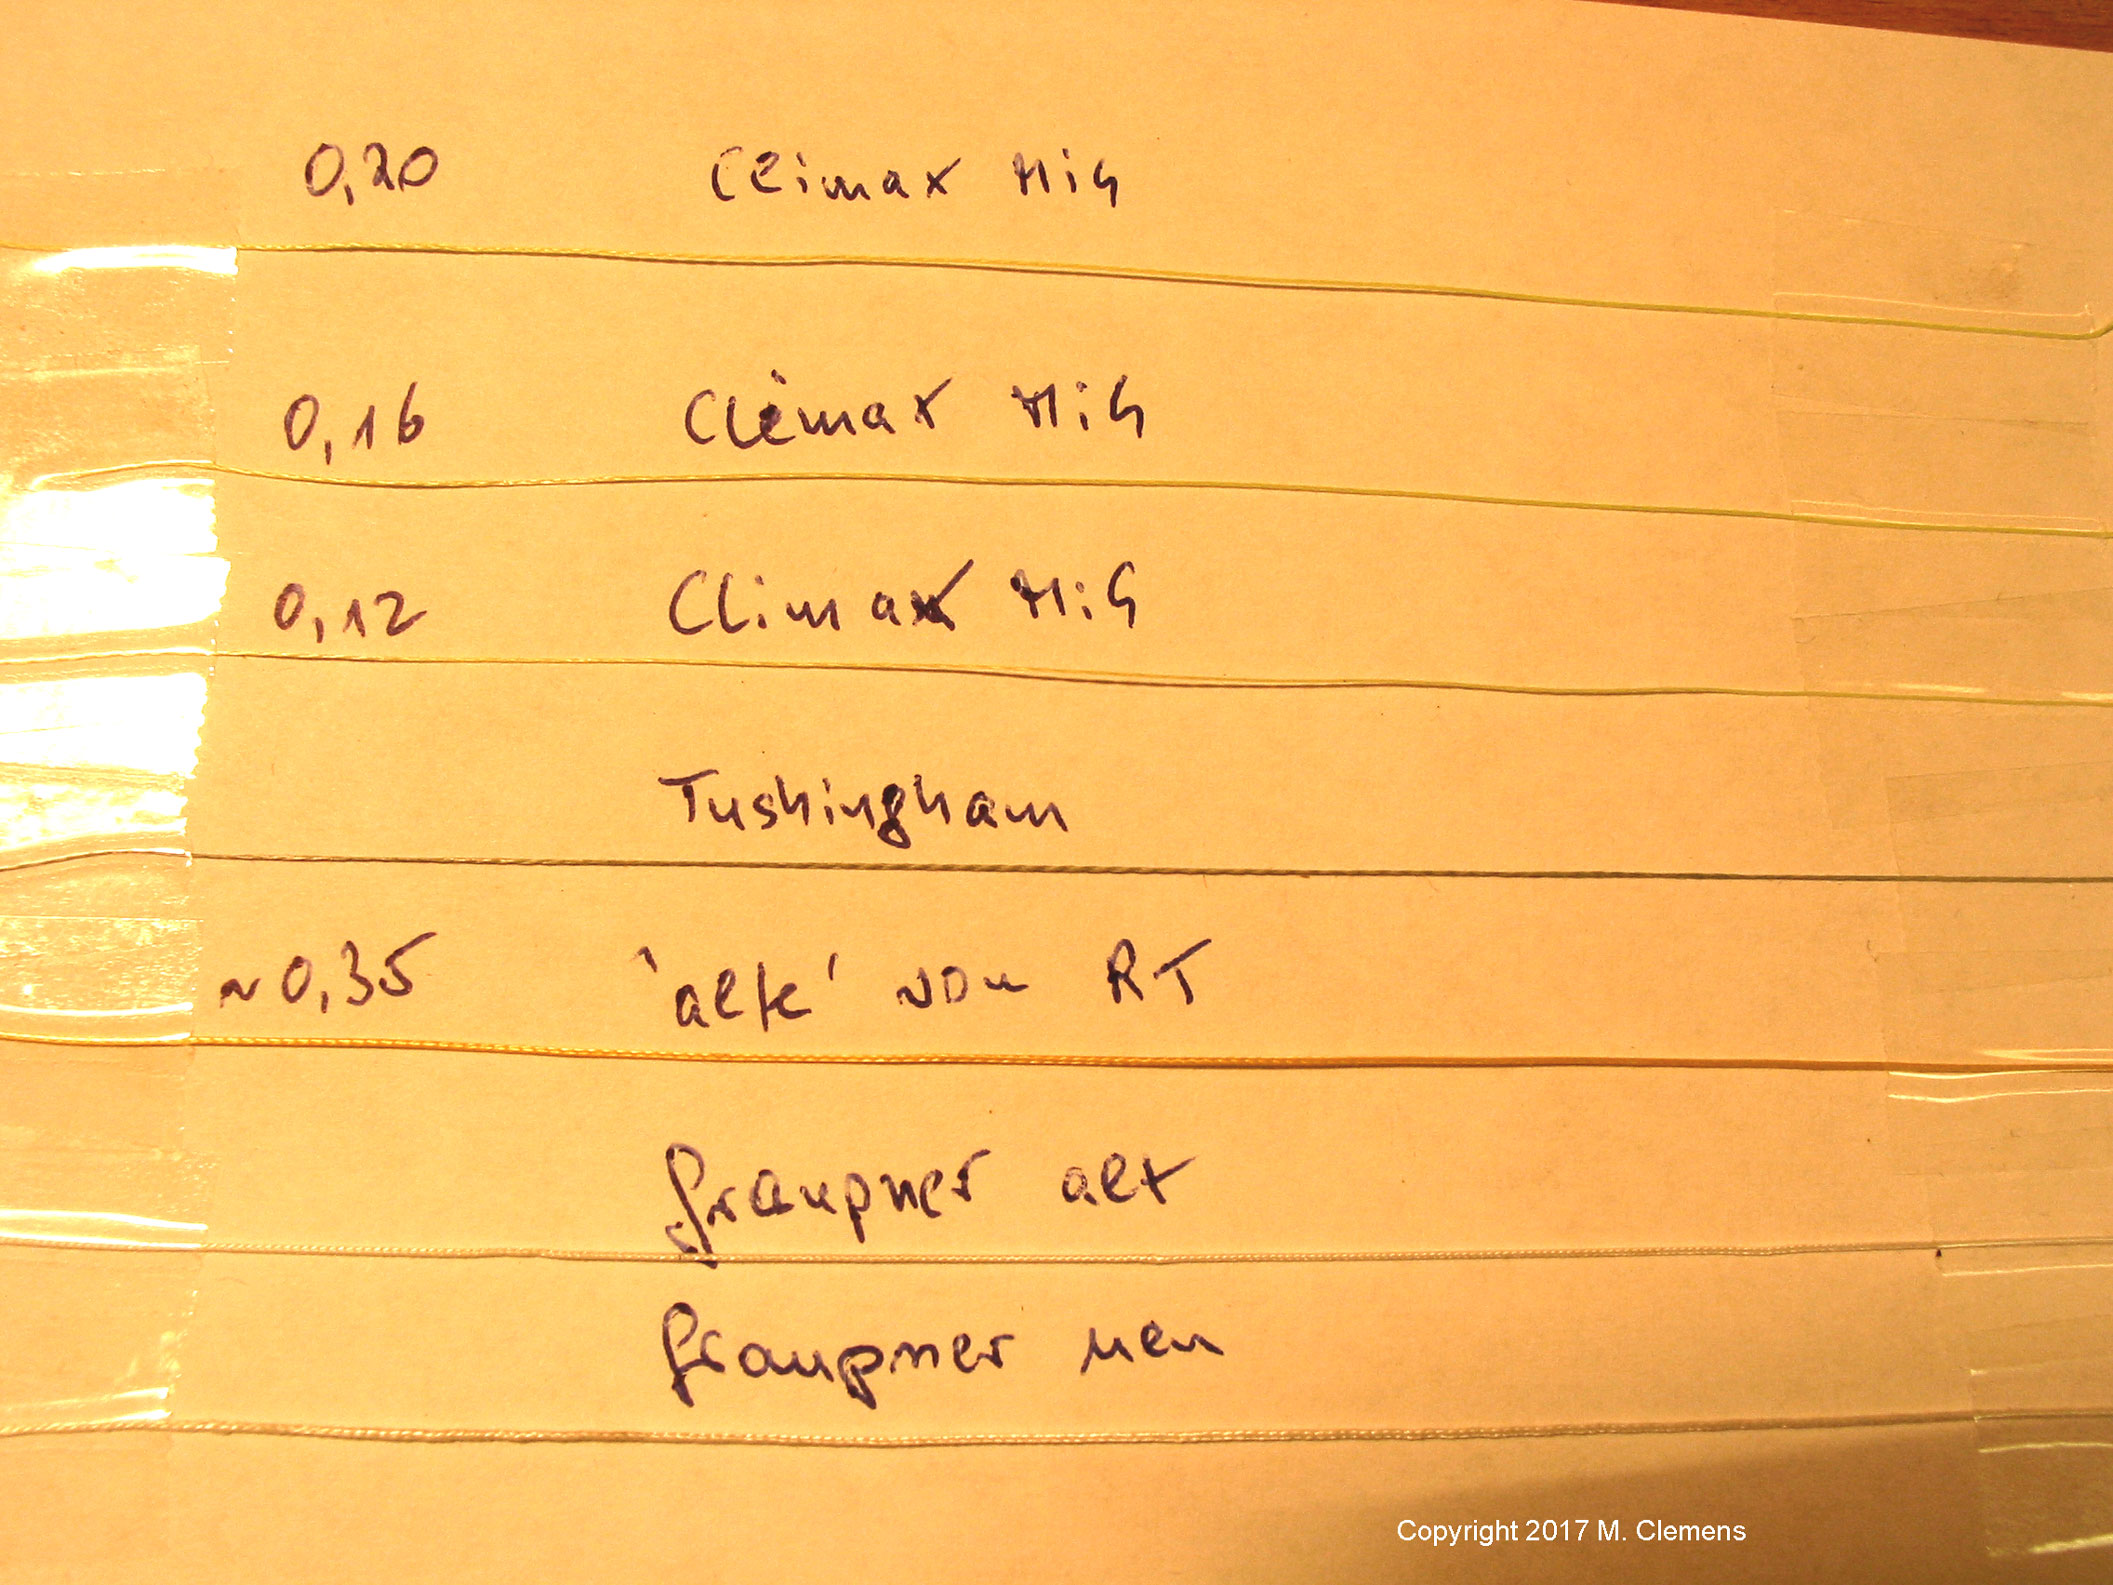 0,20 Climax MiG
0,16 Climax MiG
0,12 Climax MiG
Tushingham
~0,35 'alte' von RT
Graupner alt
Graupner neu
Copyright 2017 M. Clemens